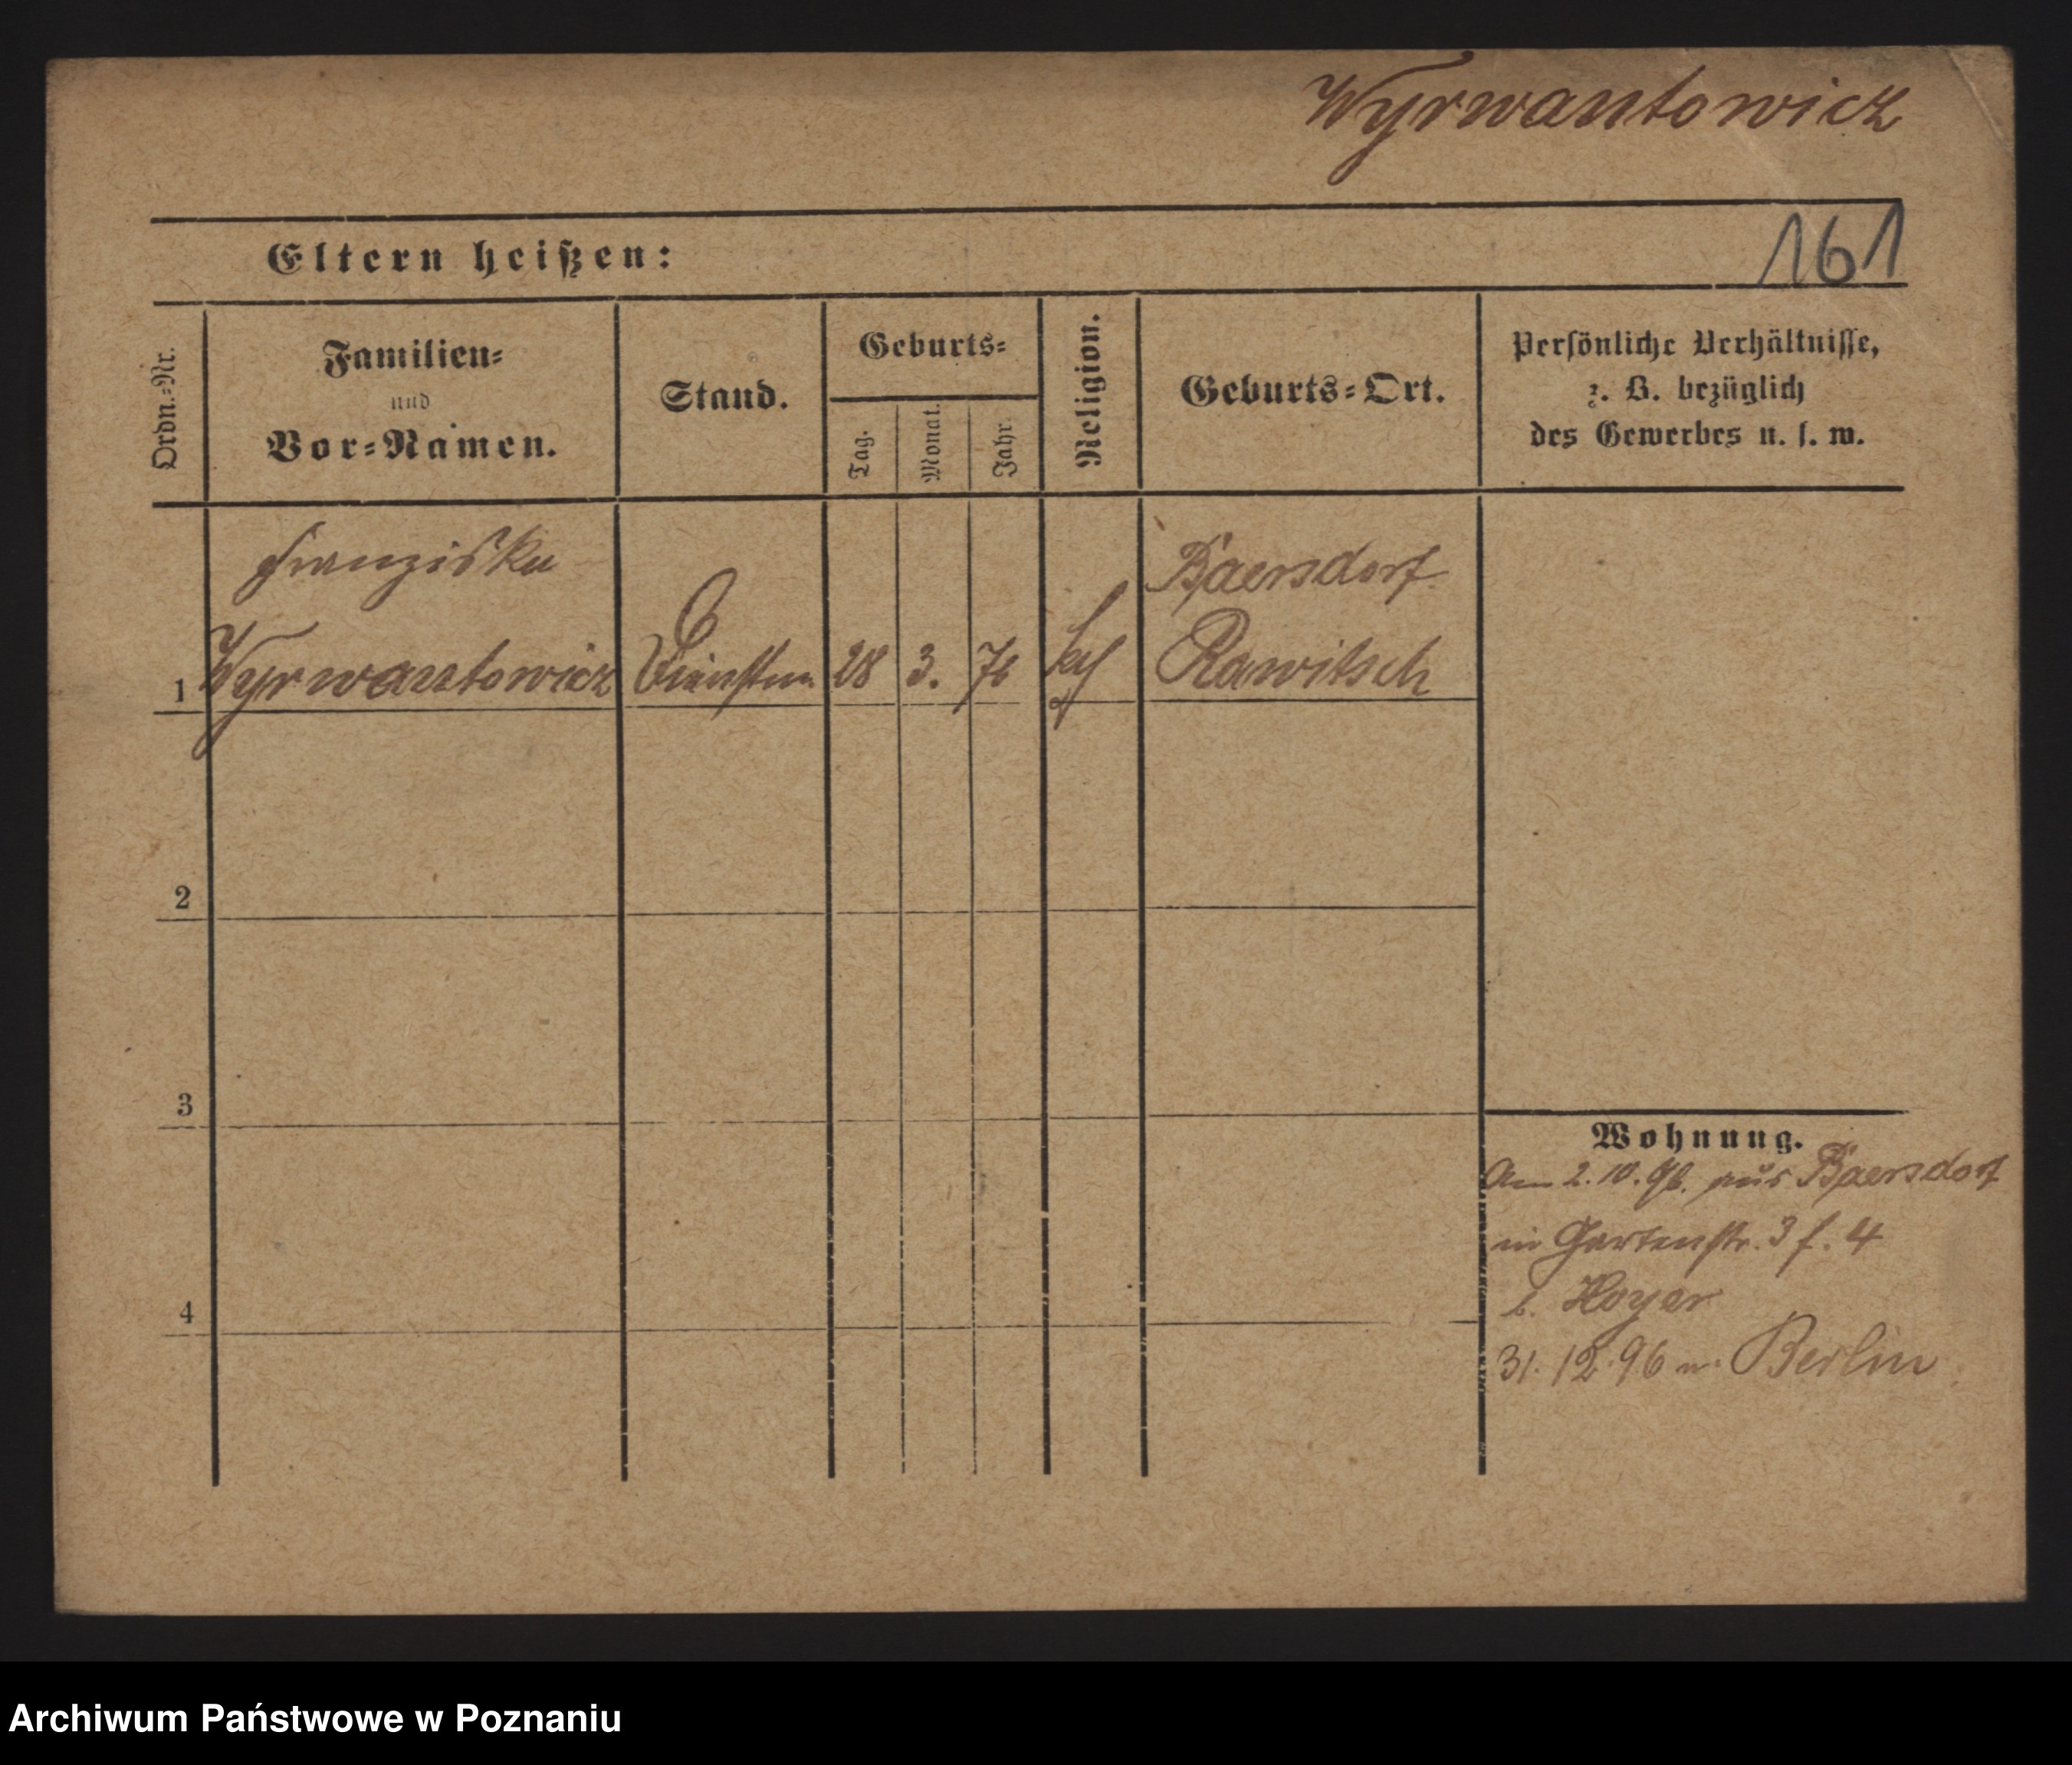 Wyrwantowicz
161
Eltern heißen:
Ordn.=Nr.
Familien=
und
Vor=Namen.
Stand.
Geburts=
Tag.
Monat.
Jahr.
Religion.
Geburts=Ort.
Persönliche Verhältnisse,
z. B. bezüglich
des Gewerbes u. s. w.
Franziska
Baersdorf
1 Wyrwantowicz 28 3. Rawitsch
2
3
4
Wohnung.
Am 2.10.96. aus Baersdorf
in Gartenstr. 3 f. 4
b. Hoyer
31.12.96 n. Berlin
Archiwum Państwowe w Poznaniu